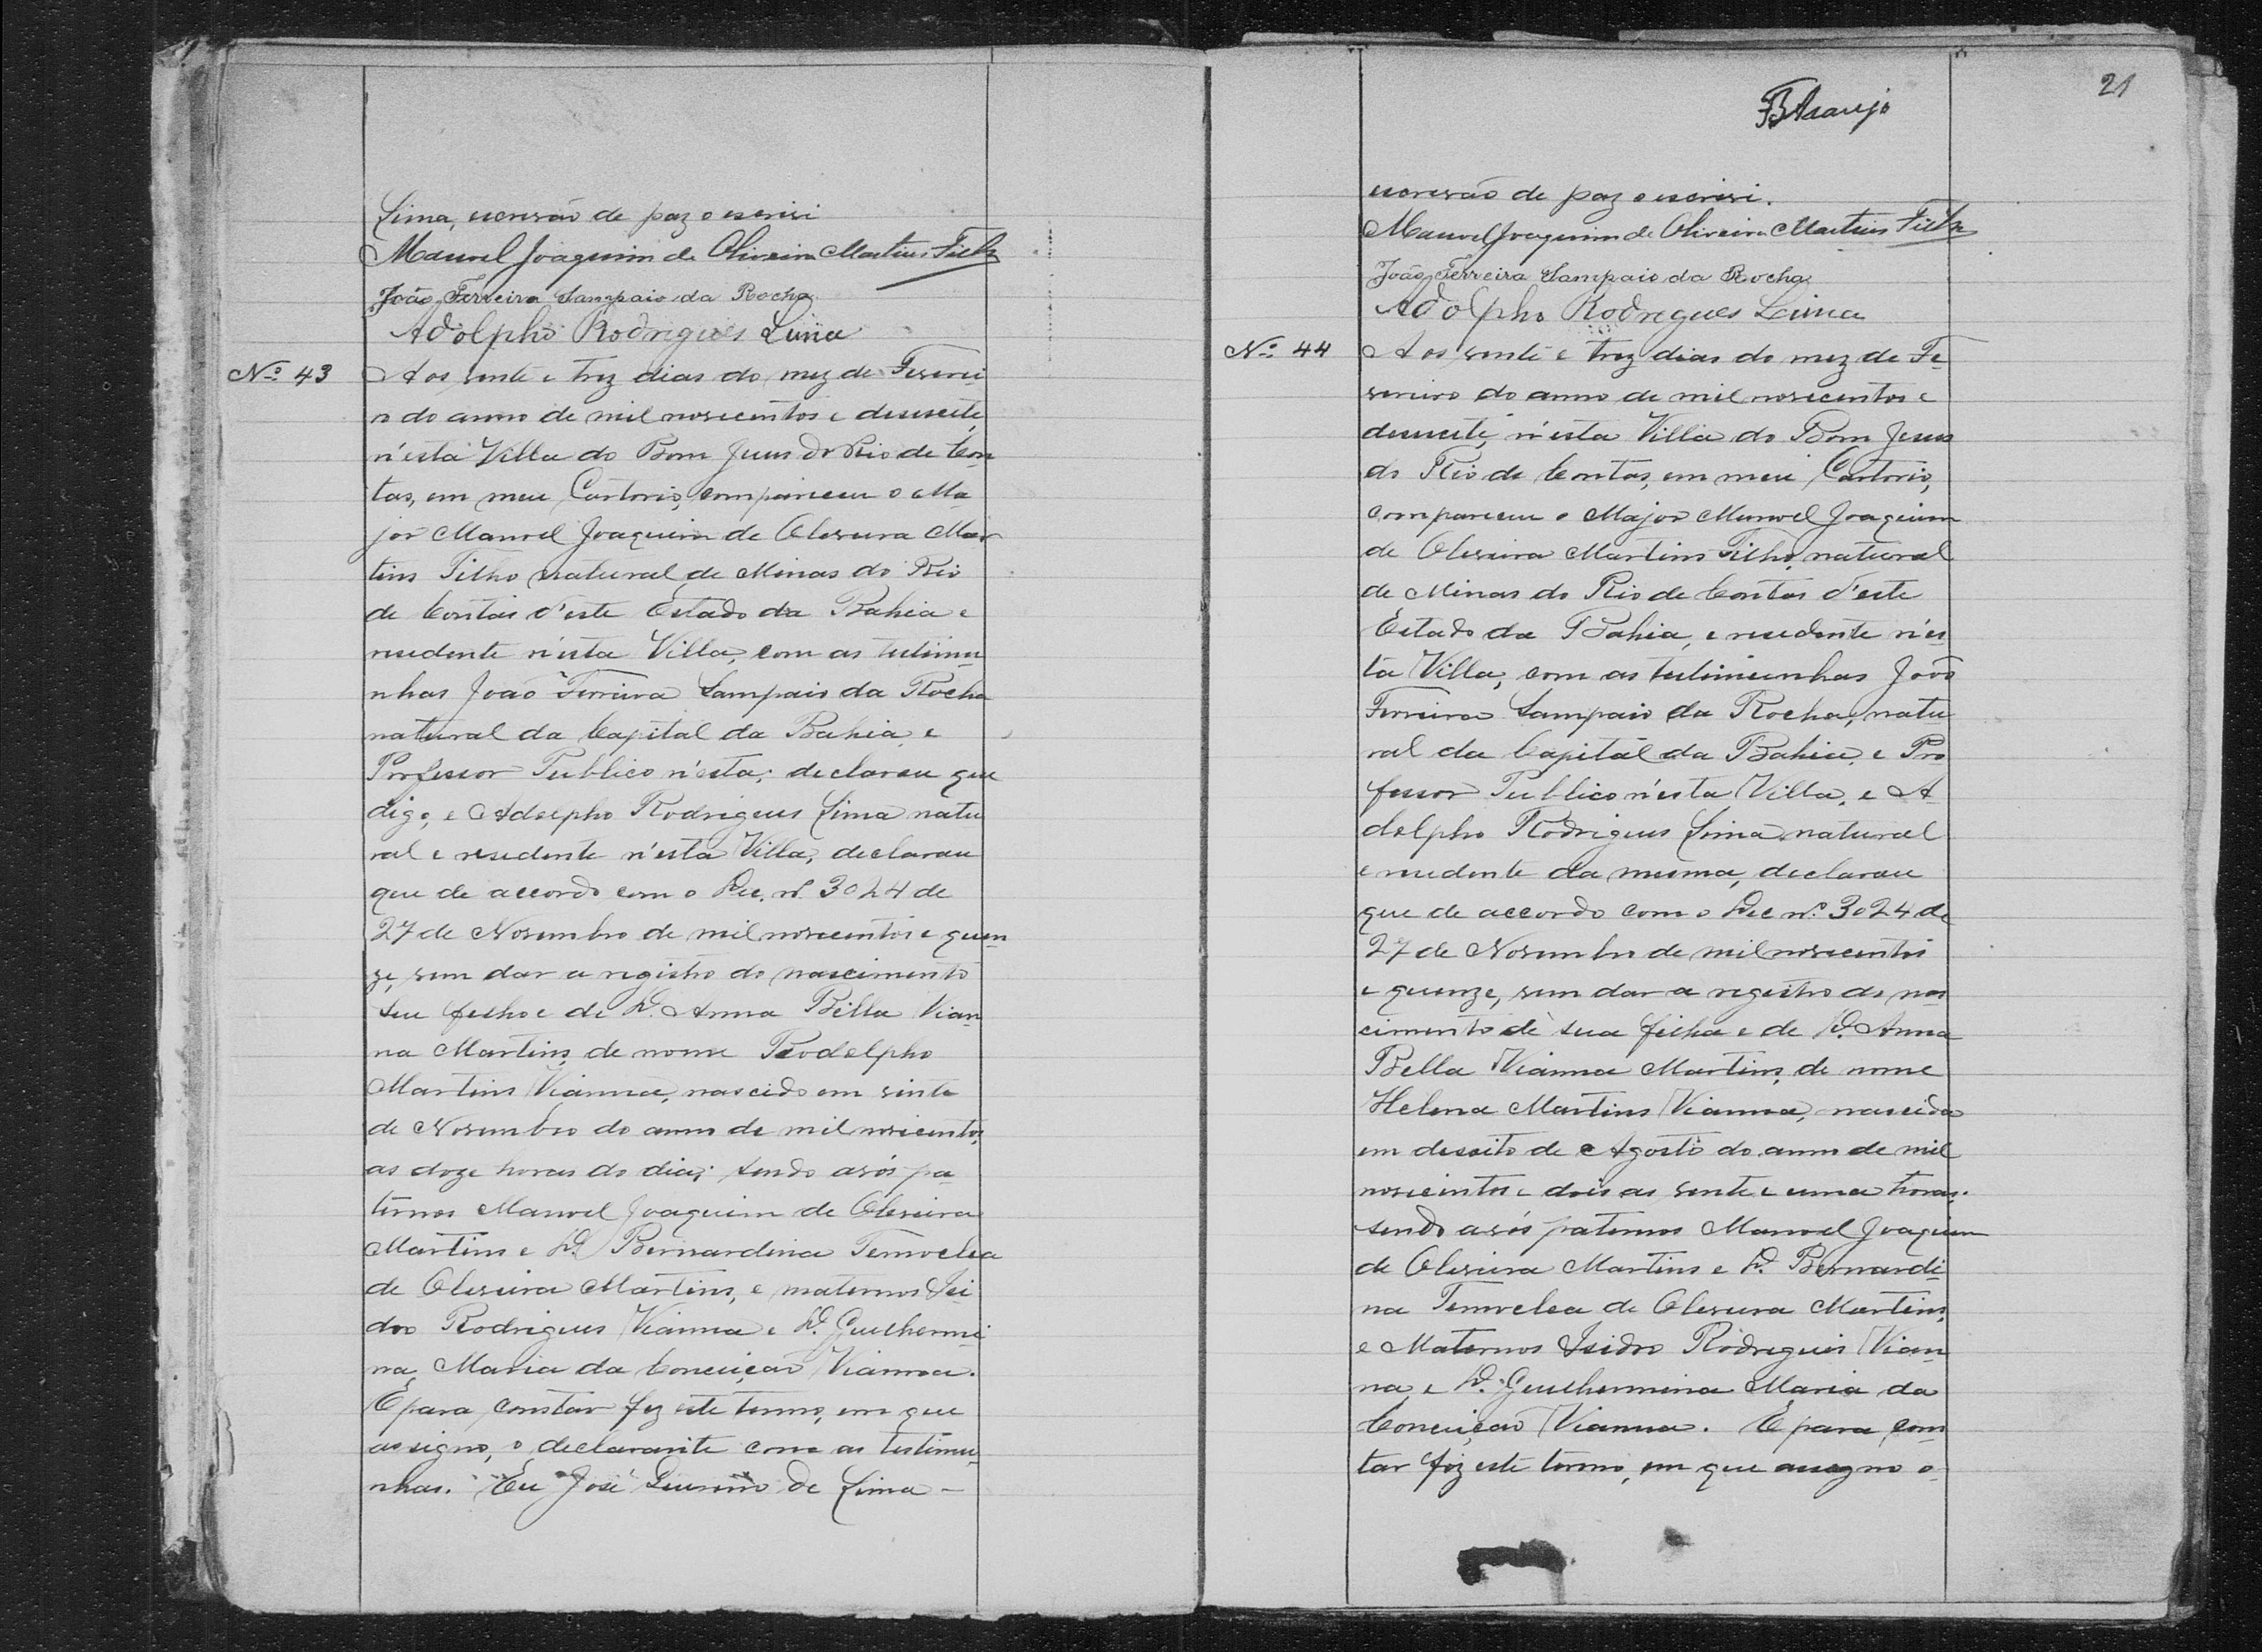 Lima, escrivão de paz o escrivi
Manoel Joaquim de Oliveira Martins Filho
João Ferreira Sampaio da Rocha
Adolpho Rodrigues Lima
Nº 43
Aos vente e trez dias do mez de Feverei-
ro do anno de mil novecentos e desesete,
n'esta Villa do Bom Jesus do Rio de Con-
tas, em meu Cartorio, compareceu o Ma-
jor Manoel Joaquim de Oliveira Mar-
tins Filho natural de Minas do Rio
de Contas d'este Estado da Bahia e
residente n'esta Villa, com as testimu-
nhas João Ferreira Sampaio da Rocha
natural da Capital da Bahia e
Professor Publico n'esta; declarou que
digo, e Adolpho Rodrigues Lima natu
ral e residente n'esta Villa, declarou
que de accordo com o Dec. nº 3024 de
27 de Novembro de mil novecentos e quin-
ze, vem dar a registro do nascimento
seu filho e de D. Anna Bella Vian-
na Martins, de nome Rodolpho
Martins Vianna, nascido em vinte
de Novembro do anno de mil novecentos,
as doze horas do dia; sendo avós pa-
ternos Manoel Joaquim de Oliveira
Martins e D. Bernardina Temoclea
de Oliveira Martins, e maternos Isi-
dro Rodrigues Vianna e D. Guilhermi-
na Maria da Conceição Vianna.
E para constar fez este termo, em que
assigno, o declarante com as testimu-
nhas. Eu José Liurino de Lima -
21
BAraujo
escrivão de paz o escrivi.
Manoel Joaquim de Oliveira Martins Filho
João Ferreira Sampaio da Rocha
Adolpho Rodrigues Lima
Nº 44
Aos vente e trez dias do mez de Fe-
vereiro do anno de mil novecentos e
desesete, n'esta Villa do Bom Jesus
do Rio de Contas, em meu Cartorio,
compareceu o Major Manoel Joaquim
de Oliveira Martins Filho, natural
de Minas do Rio de Contas d'este
Estado da Bahia, e residente n'es-
ta Villa, com as testimunhas João
Ferreira Sampaio da Rocha, natu-
ral da Capital da Bahia e Pro
fessor Publico n'esta Villa, e A-
dolpho Rodrigues Lima natural
e residente da mesma, declarou
que de accordo com o Dec nº 3024 de
27 de Novembro de mil novecentos
e quinze, vem dar a registro do nas
cimento de sua filha e de D. Anna
Bella Vianna Martins, de nome
Helena Martins Vianna, nascida
em desoito de Agosto do anno de mil
novecentos e dois as vente e uma horas;
sendo avós paternos Manoel Joaquim
de Oliveira Martins e D. Bernardi-
na Temoclea de Oliveira Martins,
e Maternos Isidro Rodrigues Vian-
na, e D. Guilhermina Maria da
Conceição Vianna. E para cons
tar fiz este termo, em que assigno o